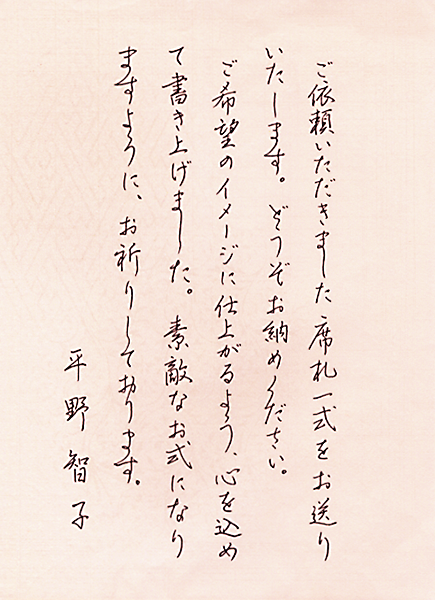 ご依頼いただきました席札一式をお送り
いたします。どうぞお納めください。
ご希望のイメージに仕上がるよう、心を込め
て書き上げました。素敵なお式になり
ますように、お祈りしております。
平野智子